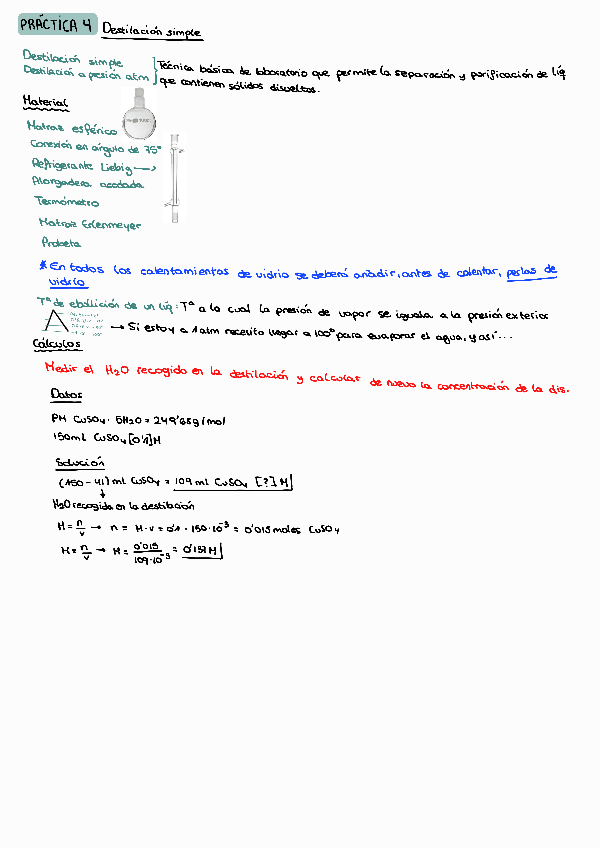 PRÁCTICA 4 Destilación simple
Destilación simple
Destilación a presión atm
Técnica básica de laboratorio que permite la separación y purificación de líq
que contienen sólidos disueltos.
Material
Matraz esférico
Conexión en ángulo de 75°
Refrigerante Liebig →
Alargadera acodada
Termómetro
Matraz Erlenmeyer
Probeta
* En todos los calentamientos de vidrio se deberá añadir, antes de calentar, perlas de
vidrio
Tª de ebullición de un líq: Tª a la cual la presión de vapor se iguala a la presión exterior
→ Si estoy a 1 atm necesito llegar a 100° para evaporar el agua, y así...
Cálculos
Medir el H2O recogido en la destilación y calcular de nuevo la concentración de la dis.
Datos
PM CuSO4 · 5H2O = 249'68g/mol
150mL CuSO4 [0'1]M
Solución
(150-41) ml CuSO4 = 109 ml CuSO4 [?] M
↓
H2O recogida en la destilación
M = n/v → n = M·v = 0'1 · 150·10⁻³ = 0'015 moles CuSO4
M = n/v → M = 0'015/109·10⁻³ = 0'137M